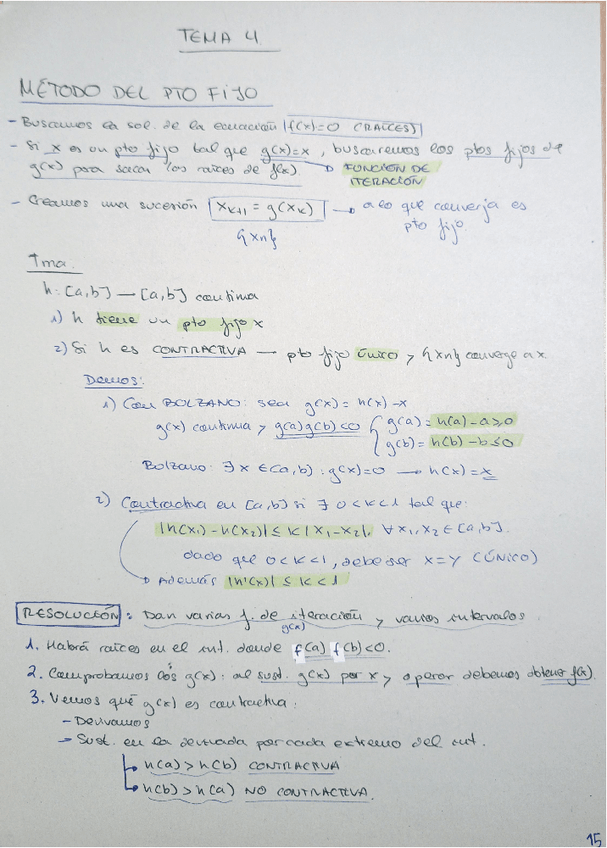 TEMA 4
MÉTODO DEL PTO FIJO
- Buscamos la sol. de la ecuación f(x)=0 (RAÍCES)
- Si x es un pto fijo tal que g(x)=x, buscaremos los ptos fijos de
g(x) para sacar las raíces de f(x) → FUNCIÓN DE
ITERACIÓN
- Creamos una sucesión x_{k+1} = g(x_k) → a lo que converja es
{x_n} pto fijo
Tma.
h: [a,b] — [a,b] continua
1) h tiene un pto fijo x
2) Si h es CONTRACTIVA — pto fijo ÚNICO y {x_n} converge a x
Demos:
1) Con BOLZANO: sea g(x) = h(x) - x
g(x) continua y g(a)g(b)<0 { g(a) = h(a) - a ≥ 0
g(b) = h(b) - b ≤ 0
Bolzano: ∃ x ∈ (a,b) : g(x)=0 → h(x) = x
2) Contractiva en [a,b] si ∃ 0<k<1 tal que:
|h(x₁) - h(x₂)| ≤ k |x₁ - x₂|, ∀ x₁, x₂ ∈ [a,b].
dado que 0<k<1, debe ser x=y (ÚNICO)
→ Además |h'(x)| ≤ k < 1
RESOLUCIÓN: Dan varias f. de iteración y varios intervalos
g(x)
1. Habrá raíces en el int. donde f(a) f(b)<0.
2. Comprobamos los g(x): al sust. g(x) por x y operar debemos obtener f(x).
3. Vemos qué g(x) es contractiva:
- Derivamos
- Sust. en la derivada por cada extremo del int.
→ h(a) > h(b) CONTRACTIVA
→ h(b) > h(a) NO CONTRACTIVA.
15